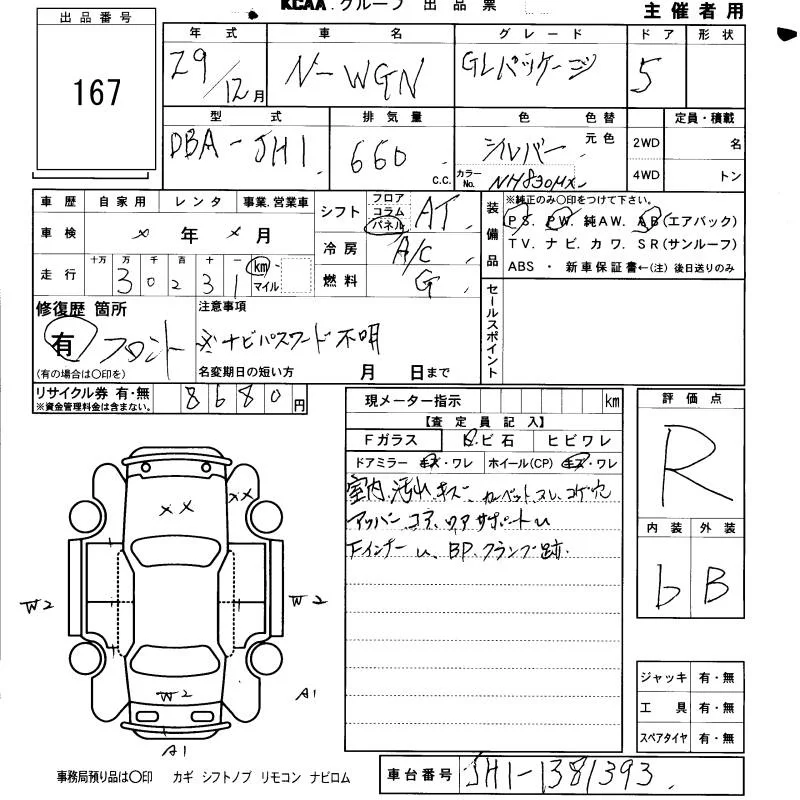 KCAA.グループ 出品票
主催者用
出品番号
167
年式 車名 グレード ドア 形状
29/12月 N-WGN GLパッケージ 5
型式 排気量 色 色替 定員・積載
DBA-JH1 660 C.C. シルバー 元色 2WD 名
カラーNo. NH830MX 4WD トン
車歴 自家用 レンタ 事業.営業車
車検 × 年 × 月
走行 十万 万 千 百 十 一
3 0 2 3 1 km マイル
シフト フロア コラム パネル AT
冷房 A/C
燃料 G
装備品
※純正のみ〇印をつけて下さい。
PS. PW. 純AW. AB(エアバック)
TV. ナビ. カワ. SR(サンルーフ)
ABS・新車保証書←(注)後日送りのみ
セールスポイント
修復歴 箇所
有 フロント
(有の場合は〇印を)
注意事項
※ナビパスワード不明
名変期日の短い方 月 日まで
リサイクル券 有・無 8680円
※資金管理料金は含まない。
現メーター指示 km
【査定員記入】
Fガラス トビ石 ヒビワレ
ドアミラー キズ・ワレ ホイール(CP) キズ・ワレ
室内.汚れ キズ. カーペットスレ.コゲ穴
アッパー.コア.ロアサポートU
FインナーU、BP.クランプ跡.
評価点
R
内装 外装
b B
×× ××
W2 W2
W2 A1
A1
ジャッキ 有・無
工具 有・無
スペアタイヤ 有・無
事務局預り品は〇印 カギ シフトノブ リモコン ナビロム
車台番号 JH1-1381393